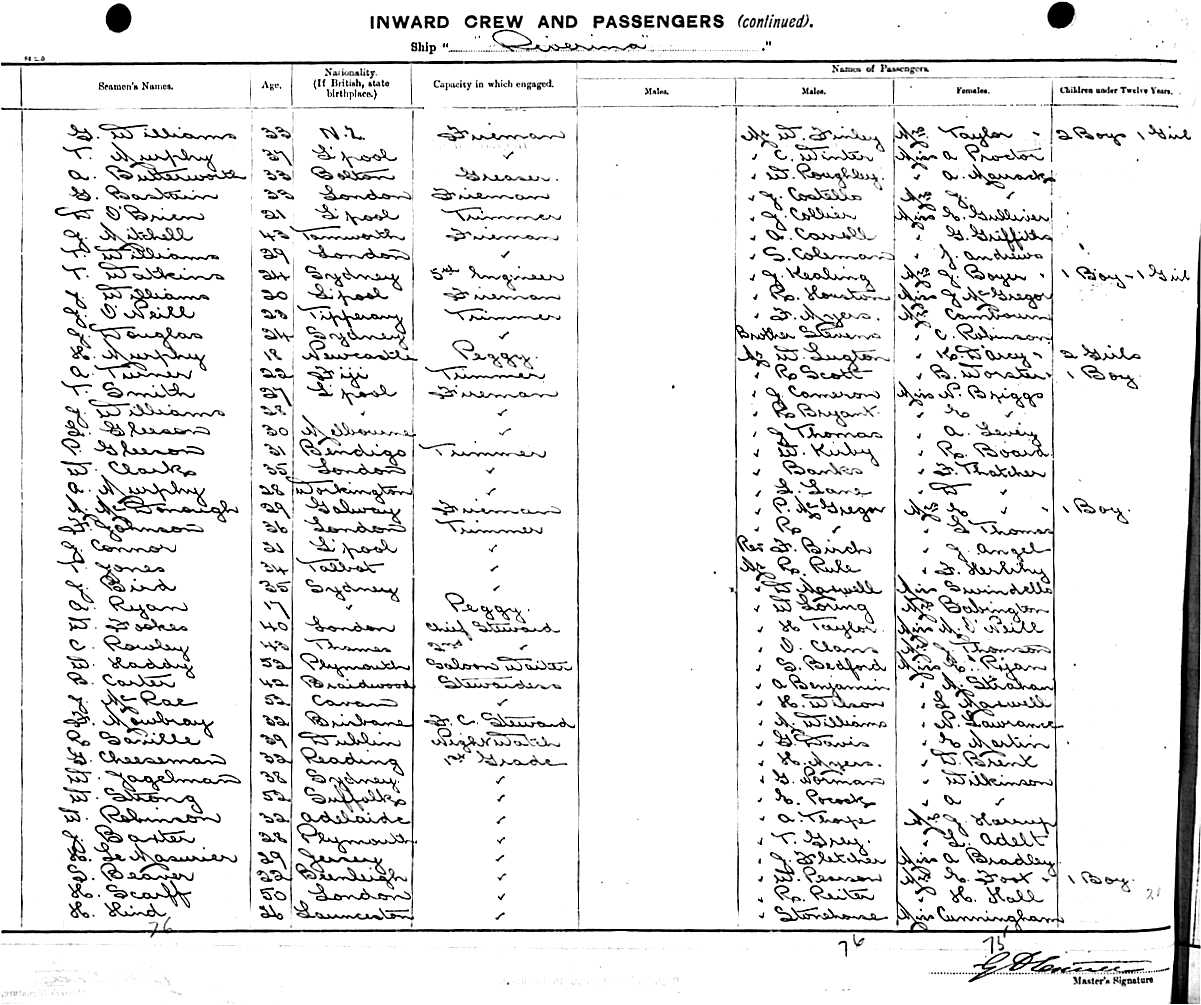 INWARD CREW AND PASSENGERS (continued).
Ship " "Riverina" ."
Seamen's Names. Age. Nationality. (If British, state birthplace.) Capacity in which engaged. Names of Passengers.
Males. Males. Females. Children under Twelve Years.
G. Williams 33 N.Z. Fireman Mr W. Finley Mrs Taylor " 2 Boys 1 Girl
T. Murphy 37 L'pool " " C. Winter Miss A Proctor
A. Butterworth 33 Bolton Greaser. " W. Roughley. " A.
G. 33 London Fireman " J. Costello " J. "
O'Brien 21 L'pool Trimmer " J. Collier Miss E. Gulliver
J. Mitchell 43 Tamworth Fireman " A. Carroll " G. Griffiths
T. Williams 39 London " " S. Coleman " J. Andrews
T. Watkins 24 Sydney 5th Engineer " J. Keating Mrs J. Boyer " 1 Boy - 1 Girl
J. Williams 30 L'pool Fireman " R. Houston Miss J. McGregor
J. O'Neill 23 Tipperary Trimmer " F. Myers. Mrs
J. Douglas 24 Sydney " Brother Stevens " C. Robinson
H. Murphy 18 Newcastle Peggy. Mr W. Lugton " K. Darcy " 2 Girls
A. Turner 22 Fiji Trimmer " R. Scott " B. Worster " 1 Boy
T. Smith 37 L'pool Fireman " J. Cameron Miss N. Briggs
J. Williams 28 " " " R. Bryant " E. "
Gleeson 30 Melbourne " " J. Thomas " A. Levey
Gleeson 31 Bendigo Trimmer " W. Kirby " R. Board
W. Clarks 35 London " " Banks " F. Thatcher
A. Murphy 28 Workington " " L. Lane " "
McDonough 29 Galway Fireman " R. McGregor Mrs E. " " 1 Boy.
Johnson 36 London Trimmer " R. " " G Thomas
J. Connor 21 L'pool " Rev F. Birch " J. Angel
J. Jones 34 Talbot " Mr R. Rule " F. Herlihy
J. Bird 35 Sydney " " Maxwell Miss Swindells
D. Ryan 17 " Peggy. " W. Loring Mrs Babington
W. Fookes 40 London Chief Steward " H. Taylor Miss M. O'Neill
C. Rowley 43 Thames 2nd " " O. Clans " J. Thomson
W. Haddy 52 Plymouth Saloon Waiter " S. Bedford E. Ryan
B. Carter 42 Braidwood Stewardess " A Benjamin Strahan
J. McRae 53 Cavan " " H. Wilson " Maxwell
Mowbray 32 Brisbane F.C. Steward " N. Williams " Lawrance
R. Saville 39 Dublin Night Watch " G. Davis " E. Martin
G. Cheeseman 33 Reading 1st Grade " H. Myers. " D. Brent
W. Jagelman 38 Sydney. " " G. Norman " Wilkinson
W. Strong 53 Suffolk " " E. Pocock " A "
W. Robinson 32 Adelaide " " A. Thorpe Mrs J. Harrup
J. Baxter 28 Plymouth " " T. Grey. " L. Adelt
Le Masurier 29 Jersey " " J. Fletcher Miss A Bradley
R. Beaver 22 Beenleigh " " W. Pearson Mrs E. Foot " 1 Boy.
H. Scarff 50 London " " R. Reiter " H. Hall
H. Hind 26 Launceston " " Stonehouse Miss Cunningham
76 76 75
Master's Signature